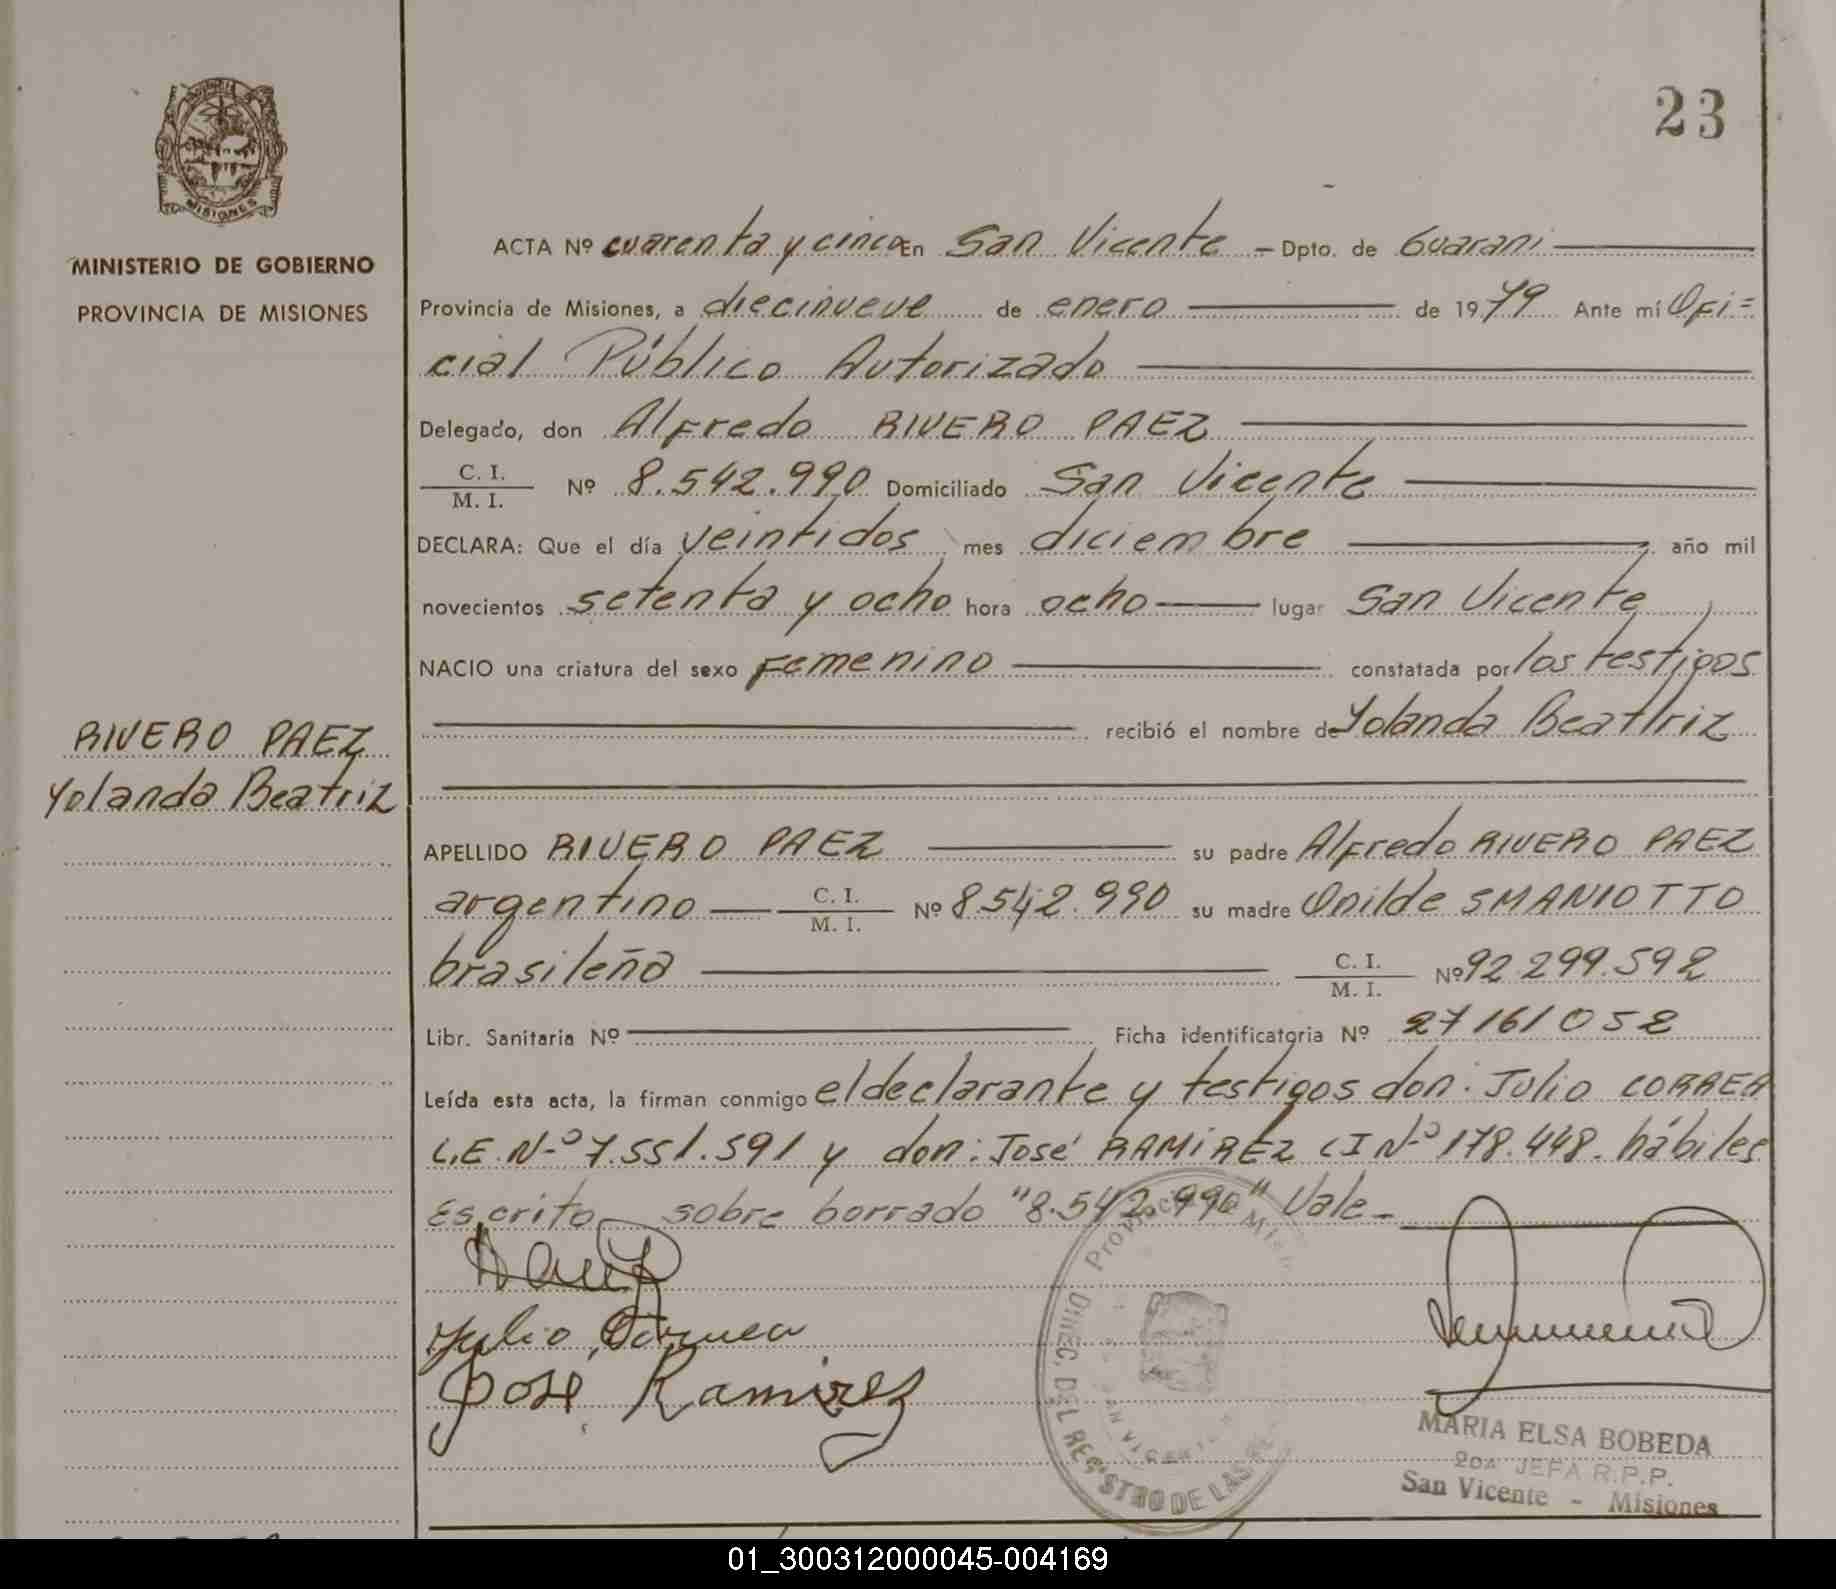 23
MISIONES
MINISTERIO DE GOBIERNO
PROVINCIA DE MISIONES
RIVERO PAEZ
Yolanda Beatriz
ACTA Nº cuarenta y cinco En San Vicente - Dpto. de Guarani
Provincia de Misiones, a diecinueve de enero de 1979 Ante mí Ofi=
cial Público Autorizado
Delegado, don Alfredo RIVERO PAEZ
C. I.
M. I. Nº 8.542.990 Domiciliado San Vicente
DECLARA: Que el día veintidos mes diciembre año mil
novecientos setenta y ocho hora ocho lugar San Vicente,
NACIO una criatura del sexo femenino constatada por los testigos
recibió el nombre de Yolanda Beatriz
APELLIDO RIVERO PAEZ su padre Alfredo RIVERO PAEZ
argentino C. I. M. I. Nº 8.542.990 su madre Onilde SMANIOTTO
brasileña C. I. M. I. Nº 92 299.592
Libr. Sanitaria Nº Ficha identificatoria Nº 27161052
Leída esta acta, la firman conmigo el declarante y testigos don: Julio CORREA
L.E. Nº 7.551.591 y don: José RAMIREZ CI Nº 178.448. hábiles
Escrito sobre borrado "8.542.990" Vale-
Julio Correa
José Ramirez
Provincia de Misiones
DIREC. DEL REGISTRO DE LAS
SAN VICENTE
MARIA ELSA BOBEDA
2da JEFA R.P.P.
San Vicente - Misiones
01_300312000045-004169